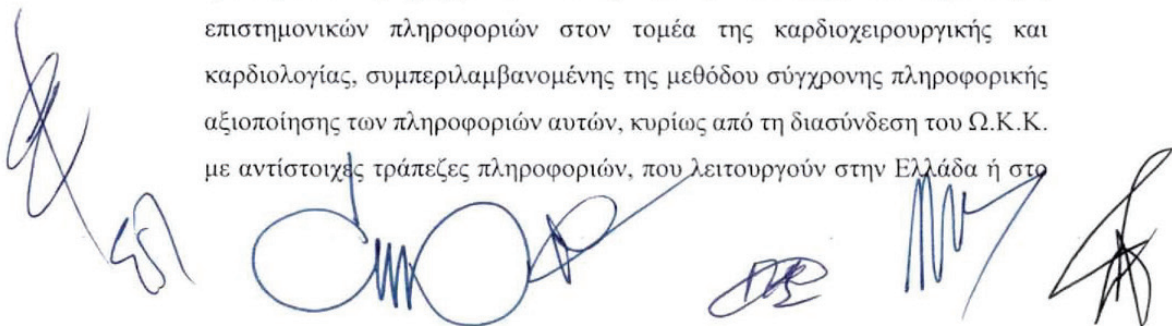 επιστημονικών πληροφοριών στον τομέα της καρδιοχειρουργικής και
καρδιολογίας, συμπεριλαμβανομένης της μεθόδου σύγχρονης πληροφορικής
αξιοποίησης των πληροφοριών αυτών, κυρίως από τη διασύνδεση του Ω.Κ.Κ.
με αντίστοιχές τράπεζες πληροφοριών, που λειτουργούν στην Ελλάδα ή στο